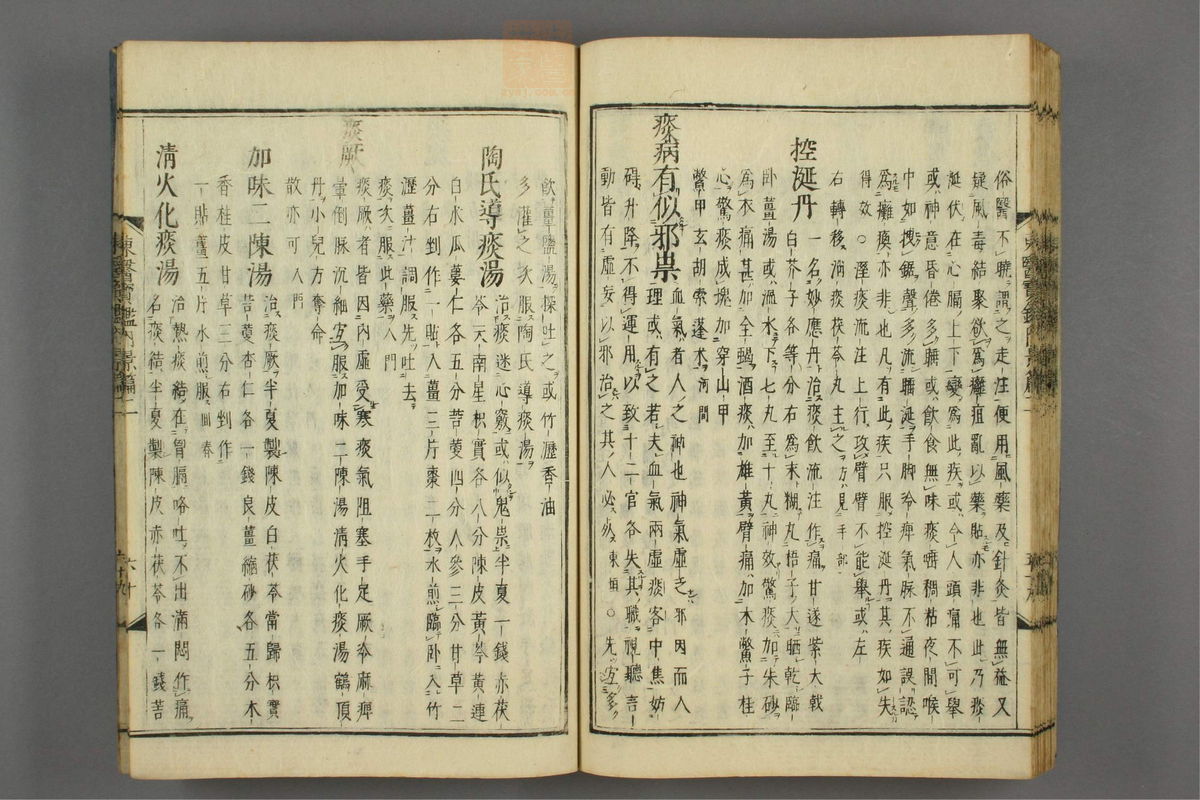 俗醫不曉謂之走注便用風藥及針灸皆無益又
疑風毒結聚欲爲癰疽亂以藥貼亦非也此乃痰
涎伏在心膈上下變爲此疾或令人頭痛不可擧
或神意昏倦多睡或飮食無味痰唾稠粘夜間喉
中如拽鋸聲多流睡涎手脚冷痺氣脉不通誤認
爲癱瘓亦非也凡有此疾只服控涎丹其疾如失
得效○痰流注上行攻臂臂不能擧或左
右轉移㴠痰茯苓丸主之方見手部
控涎丹
一名妙應丹治痰飮流注作痛甘遂紫大戟
白芥子各等分右爲末糊丸梧子大晒乾臨
臥薑湯或溫水下七丸至十丸神效驚痰加朱砂
爲衣痛甚加全蝎酒痰加雄黃臂痛加木鱉子桂
心驚痰成塊加穿山甲
鱉甲玄胡索蓬朮河間
痰病有似邪祟
血氣者人之神也神氣虛乏邪因而入
理或有之若夫血氣兩虛痰客中焦妨
碍升降不得運用以致十二官各失其職視聽言
動皆有虛妄以邪治之其人必死東垣○先宜多
飮薑鹽湯探吐之或竹瀝香油
多灌之次服陶氏導痰湯
陶氏導痰湯
治痰迷心竅或似鬼祟半夏一錢赤茯
苓天南星枳實各八分陳皮黃芩黃連
白朮瓜蔞仁各五分桔梗四分人參三分甘草二
分右剉作一貼入薑三片棗二枚水煎臨臥入竹
瀝薑汁調服先吐去
痰次服此藥入門
痰厥
痰厥者皆因內虛受寒痰氣阻塞手足厥冷麻痺
暈倒脉沉細宜服加味二陳湯淸火化痰湯鶴頂
丹小兒方奪命
散亦可入門
加味二陳湯
治痰厥半夏製陳皮白茯苓當歸枳實
桔梗杏仁各一錢良薑縮砂各五分木
香桂皮甘草三分右剉作
一貼薑五片水煎服回春
淸火化痰湯
治熱痰結在胷膈咯吐不出滿悶作痛
名痰結半夏製陳皮赤茯苓各一錢桔